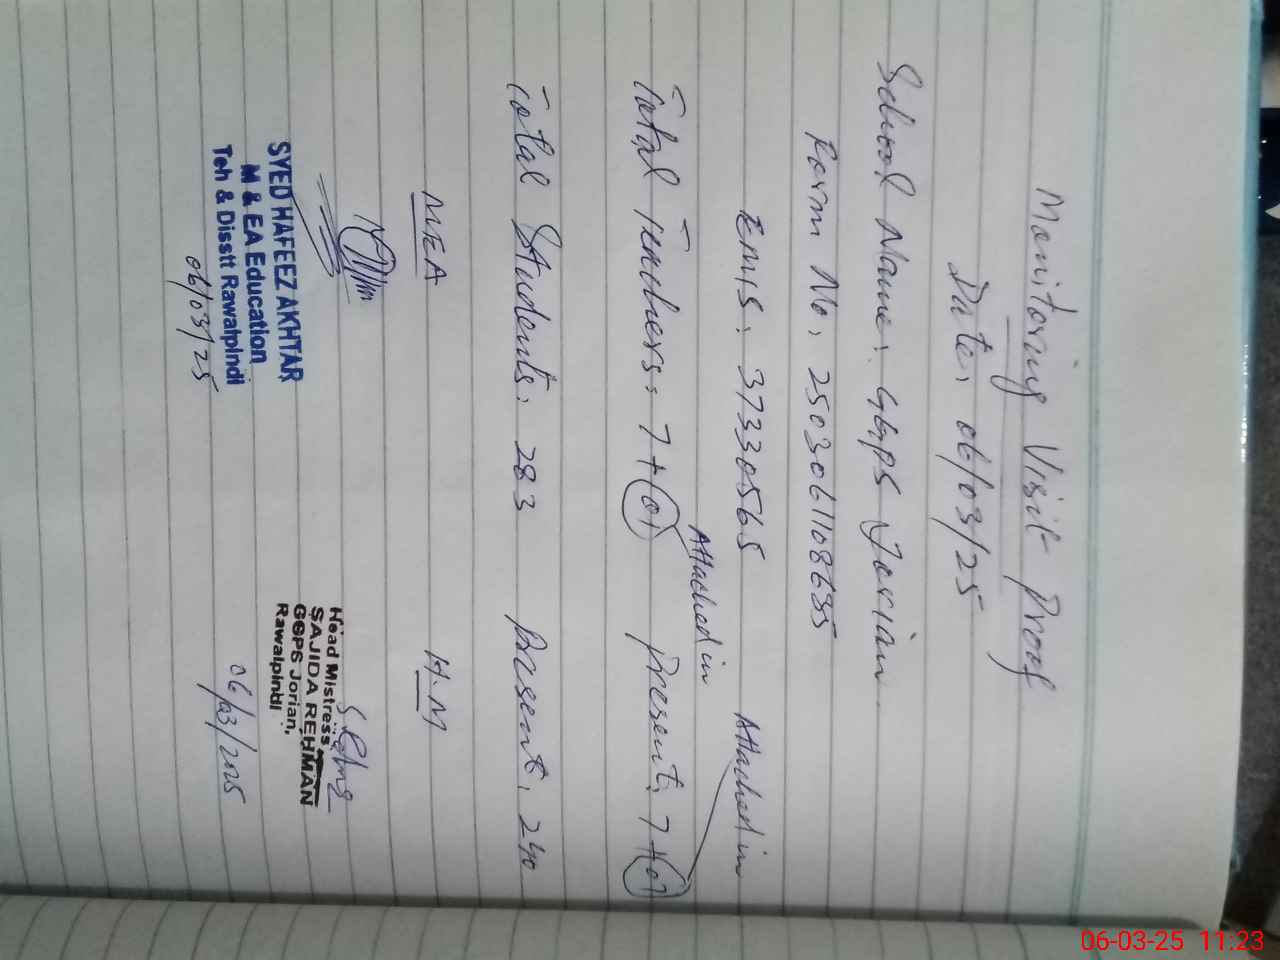 Monitoring Visit Proof
Date: 06/03/25
School Name: GGPS Jorian
Form No: 2503061108635
EMIS: 37330565
Attached in
Attached in
Total Teachers: 7+01 Present: 7+01
Total Students: 283 Present: 240
MEA H.M
SYED HAFEEZ AKHTAR
M & EA Education
Teh & Disstt RawalpIndi
06/03/25
Head Mistress
SAJIDA REHMAN
GGPS Jorian,
RawalpIndi
06/03/2025
06-03-25 11:23